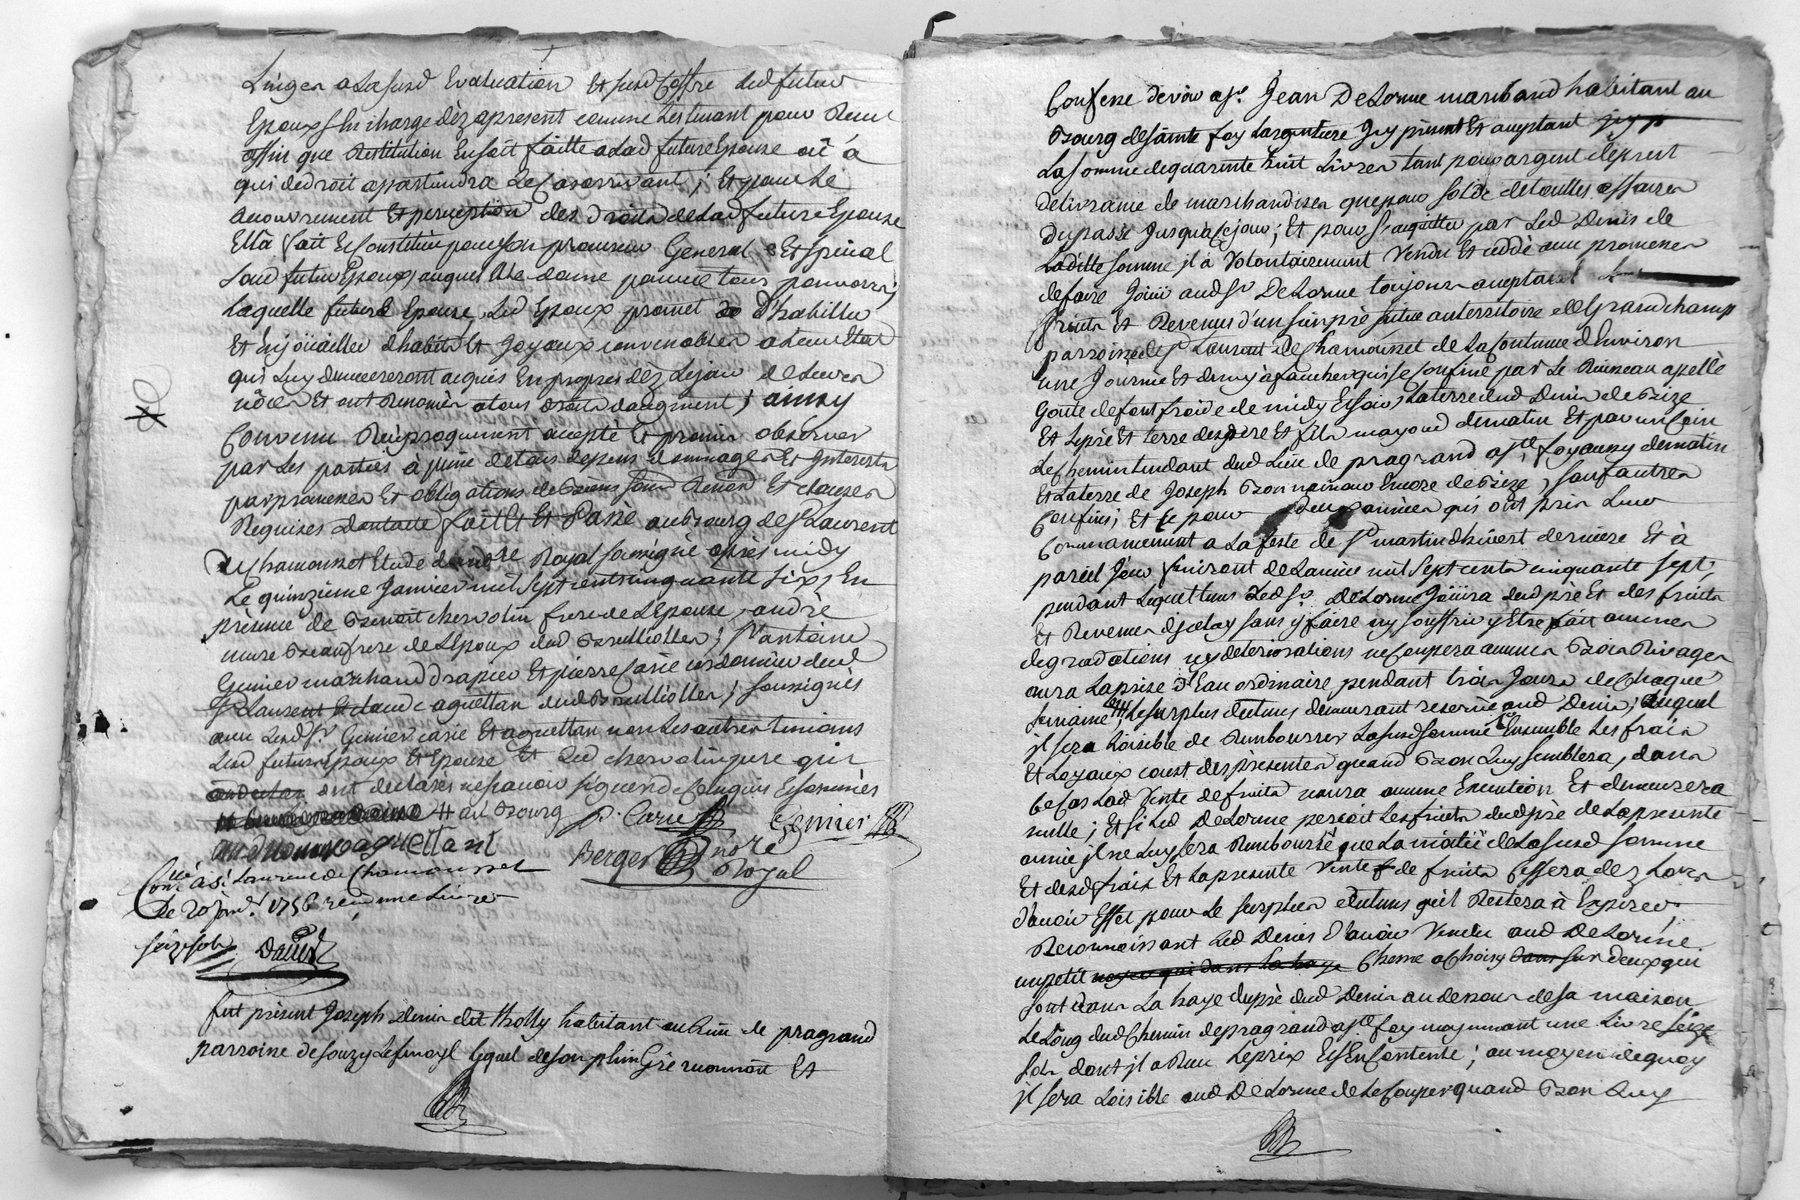 Linges a Lasusd Evaluation Et susd Coffre Led futur
Epoux s'En charge déz apresent comme Les tenant pour Reçu
affin que Restitution En soit faitte a Lad future Epouse où à
qui de droit appartiendra Le Cas arrivant ; Et pour Le
recouvrement Et perception des droits de Lad future Epouse
Ella fait Et Constitüe pour son procureur General & Et special
Led futur Epoux auquel Elle donne pouvoir tous pouvoirs
Laquelle future Epouse Led Epoux promet de d'habiller
Et Enjoüailler d'habits Et Joyaux convenables a Leur Etat
qui Luy demeureront acquis En propres dèz Le jour de Leurs
nôces Et ont Renoncés a tous droits d'augment ; ainsy
Convenu Reciproquement accepté Et promis observer
par Les parties à peine de tous depens dommages Et Interests
par promesses Et obligations de Biens soum Renon Et clauses
Requises dont acte fait Et Passé au Bourg de St Laurent
de Chamousset Etude du nore Royal soussigné après midy
Le quinzieme Janvier mil sept cents cinquante six, En
présence de Benoit chervolin frere de L'Epouse, andré
mure Beaufrere de L'Epoux dud Brullioles ; sr antoine
Genier marchand drapier Et pierre Carié cordonnier dud
St Laurent Et claude aguettan dud Brullioles ; soussignés
avec Lesd sr Genier carié Et aguettan non Les autres temoins
Led futurs Epoux Et Epouse Et Led chervolin pere qui
ont declarés ne sçavoir signer de Ce enquis Et sommés
# aud Bourg P. Carié Genier
aguettant
Berger nore Royal
Conlé a St Laurent de Chamousset
Le 20 Janr 1756 reçu une Livre
seize sols David
fut présent Joseph Denis dit Tholly habitant au Lieu de pragrand
parroisse de Souzy Lefmoyl Lequel de son plein Gré reconnoit Et
Confesse devoir a sr Jean De Lorme marchand habitant au
Bourg de Sainte foy Largentiere Icy présent Et acceptant
La somme de quarante huit Livres tant pour argent depresté
delivrance de marchandises que pour solde de touttes affaires
du passé Jusqu'a Ce jour ; Et pour s'acquitter par Led Denis de
Laditte somme il à Volontairement Vendu Et cédé avec promesses
de faire Joüir aud sr De Lorme toujours acceptant Les
fruits Et Revenus d'un sien pré situé au territoire de Grandchamp
parroisse de St Laurent de Chamousset de La Contenue d'Environ
une Journée Et demy à faucher qui se Confine par Le Ruisseau apellé
Goute de font froide de midy Et soir, La terre dud Denis de Bize
Et Le pré Et terre des pere Et fils mayoud de matin Et par un Coin
Le Chemin tendant dud Lieu de pragrand a ste foy aussy de matin
Et La terre de Joseph Bonnaimour Encore de Bize, sauf autres
Confins ; Et Ce pour deux années qui ont pris Leur
Commancement a La feste de St martin d'hivert derniere Et à
pareil Jour finiront de L'année mil sept cents cinquante sept,
pendant Lequel tems Led sr De Lorme Joüira dud pré Et des fruits
Et Revenus d'Jcelay sans y faire ny souffrir y Etre fait aucunes
degradations ny deteriorations ne Coupera aucuns Bois Rivages
aura La prise d'Eau ordinaire pendant trois Jours de Chaque
semaine Le surplus du tems demeurant reservé aud Denis ; auquel
il sera Loisible de Rembourser La susd somme Ensemble Les frais
Et Loyaux coust des présentes quand Bon Luy semblera, dans
Ce Cas Lad Vente de fruits n'aura aucune Execution Et demeurera
nulle ; Et si Led De Lorme perçoit Les fruits dud pré de La presente
année il ne Luy sera Remboursé que La moitié de La susd somme
Et desd frais Et La presente Vente de fruits Cessera déz Lors
d'avoir Effet pour Le surplus du tems qu'il Restera à Expirer,
Reconnoissant Led Denis d'avoir Vendu aud De Lorme
un petit Chesne a Choisy sur deux qui
sont dans La haye du pré dud Denis au dessous de sa maison
Le Long dud Chemin de pragrand a ste foy moyennant une Livre seize
sols dont il a Reçu Le prix Et s'En Contente ; au moyen de quoy
il sera Loisible aud De Lorme de Le Couper quand Bon Luy